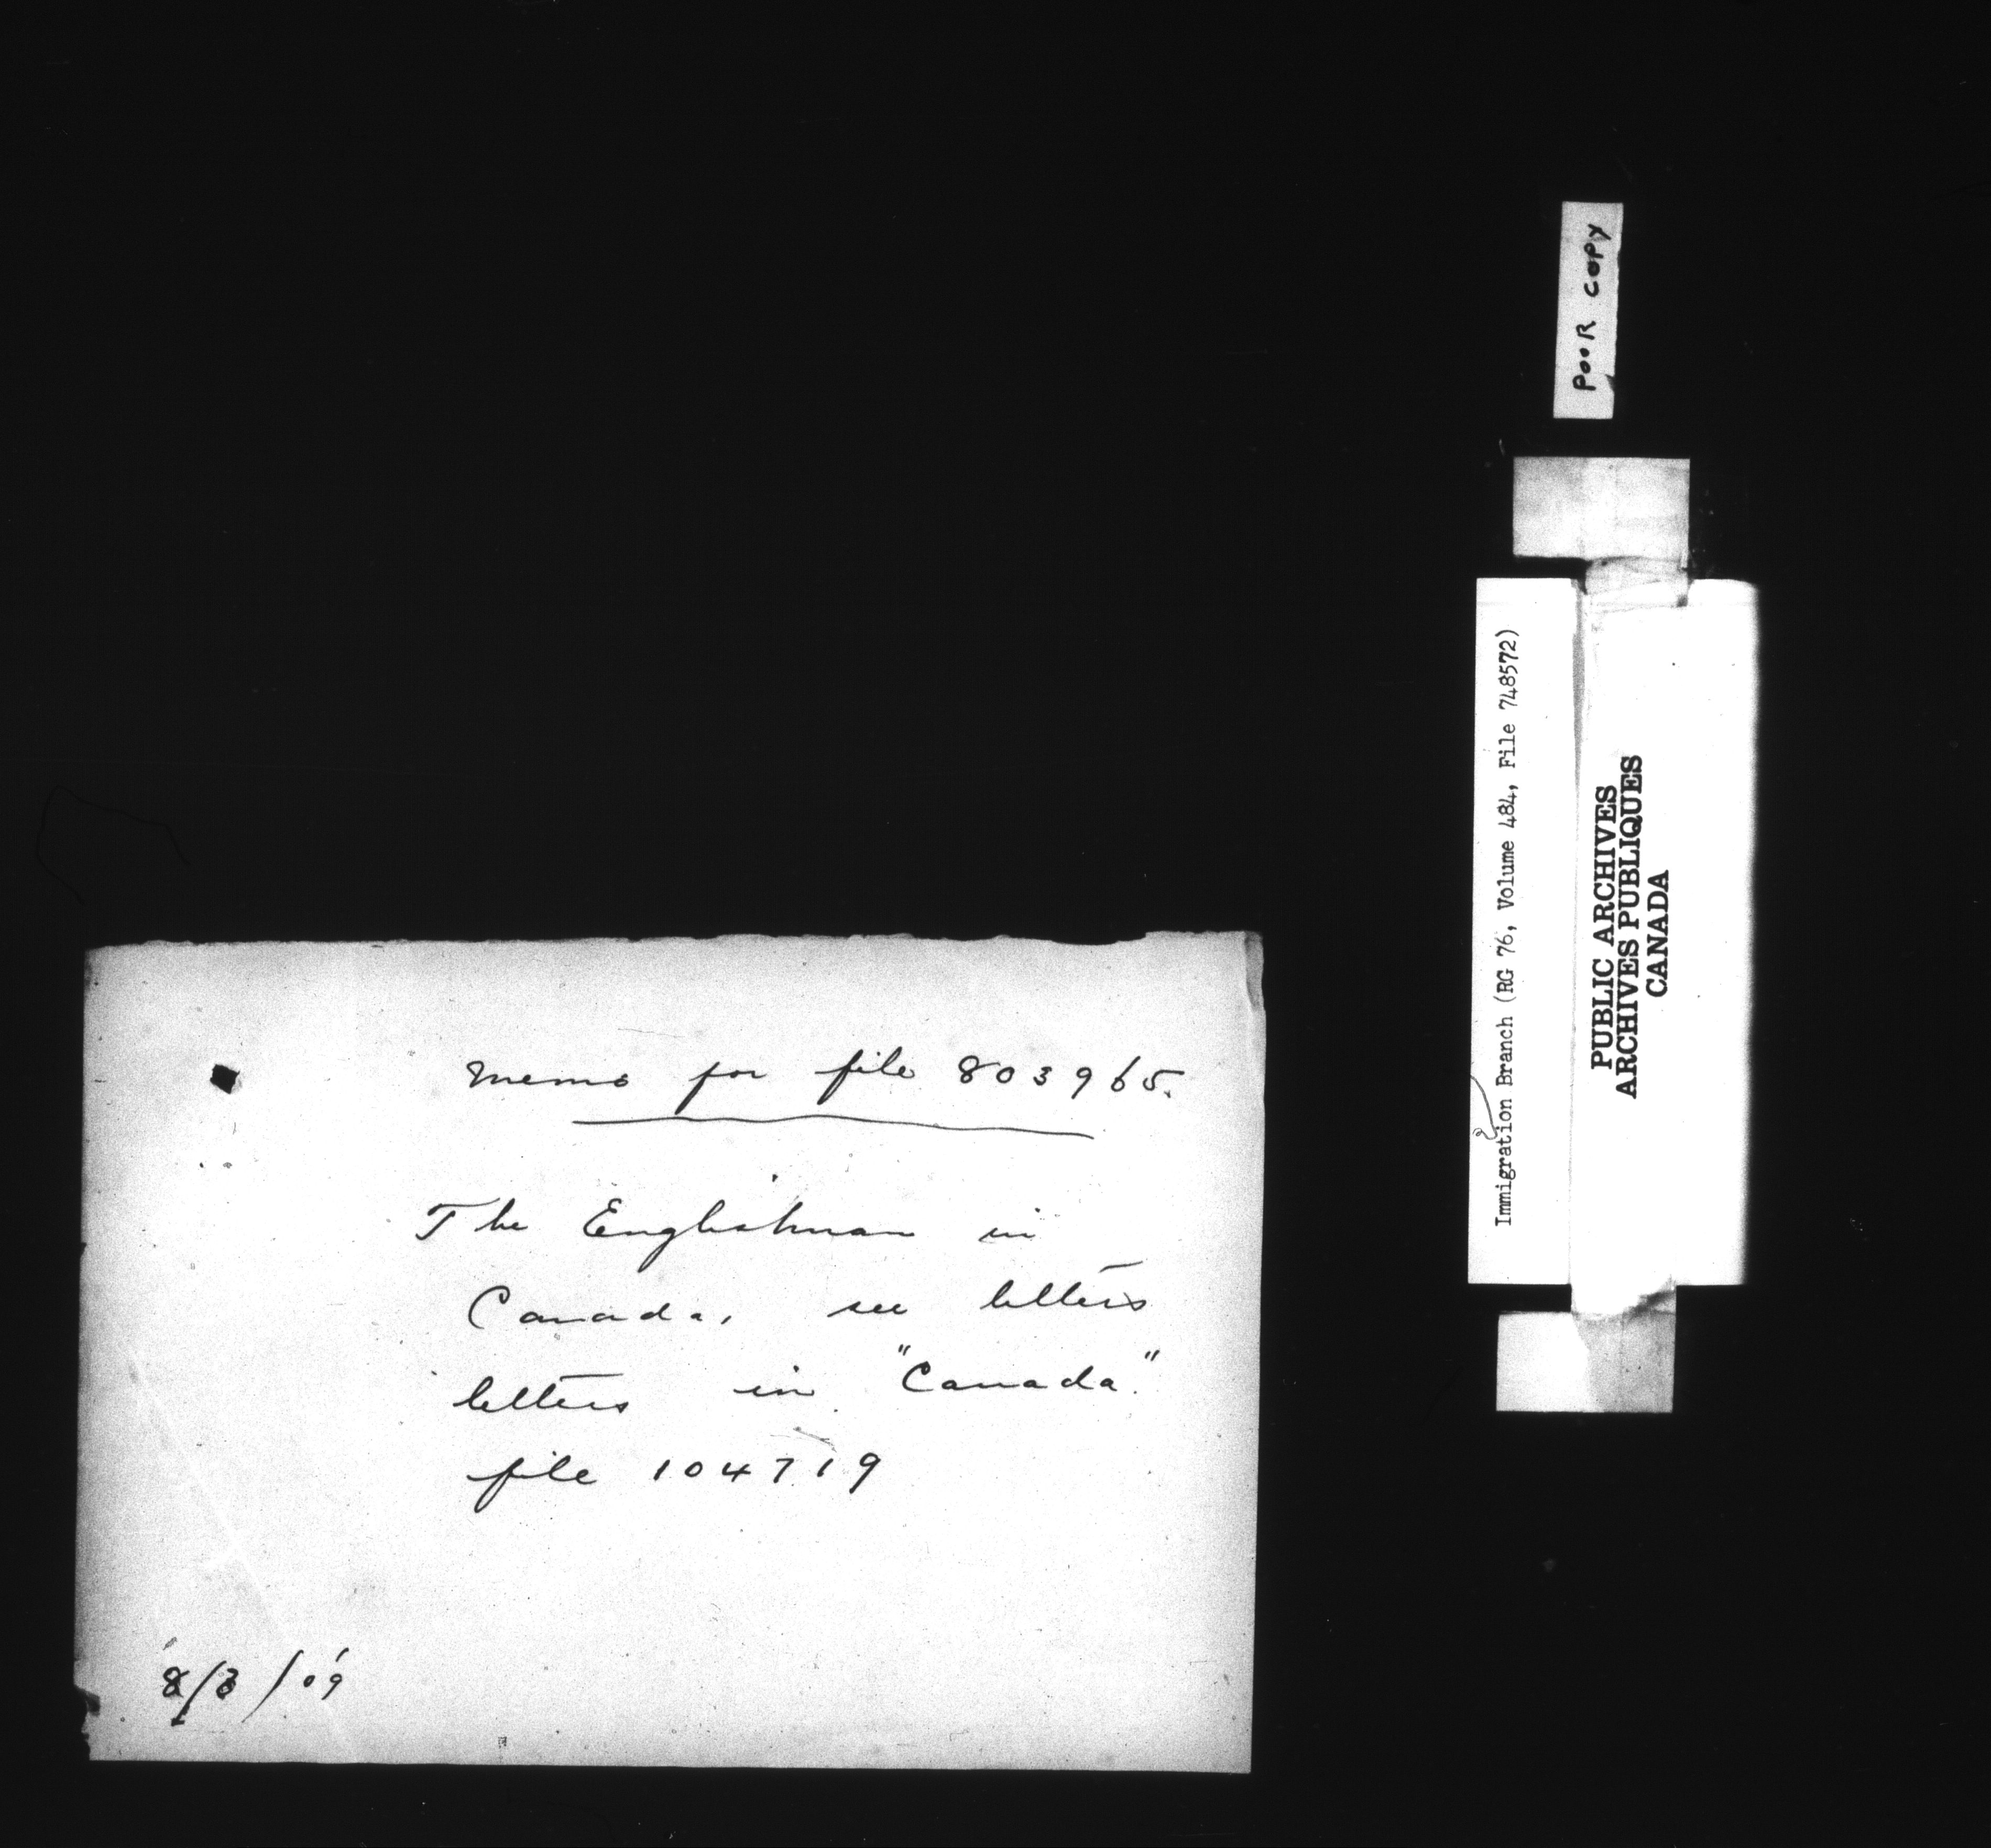 Memo for file 803965.
The Englishman in
Canada, see letters
letters in "Canada."
file 104719
8/3/09
POOR COPY
Immigration Branch (RG 76, Volume 484, File 748572)
PUBLIC ARCHIVES
ARCHIVES PUBLIQUES
CANADA